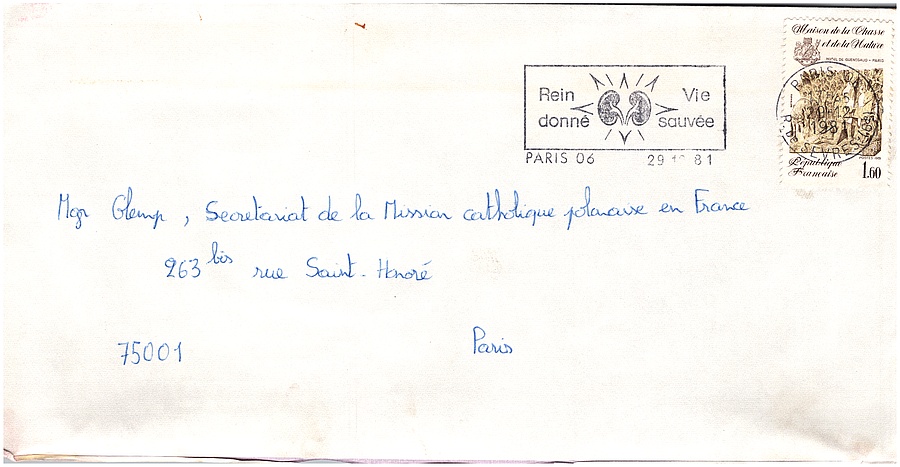 Maison de la Chasse
et de la Nature
HOTEL DE GUENEGAUD - PARIS
PARIS
R. DE SEVRES
République
Française
POSTES
1.60
Rein Vie
donné sauvée
PARIS 06 29 81
Mgr Glemp, Secretariat de la Mission catholique polonaise en France
263 bis rue Saint-Honoré
75001 Paris